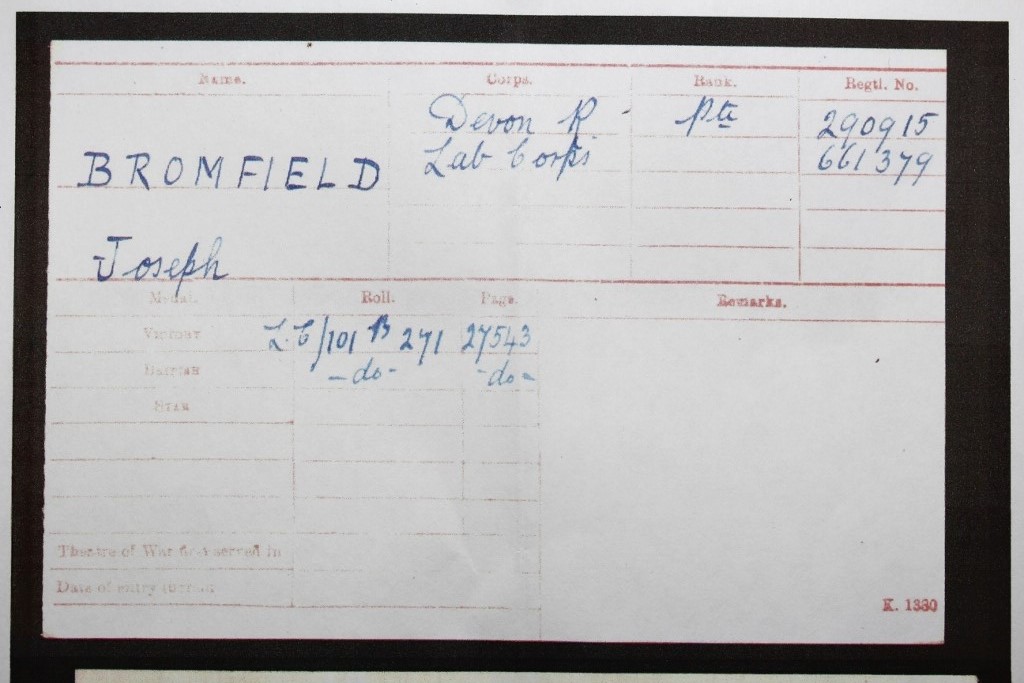 Name. Corps. Rank. Regtl. No.
Devon R Pte 290915
BROMFIELD Lab Corps 661379
Joseph
Medal. Roll. Page. Remarks.
VICTORY L.C/101 B 271 27543
BRITISH -do- -do-
STAR
Theatre of War first served in
Date of entry therein
K. 1380